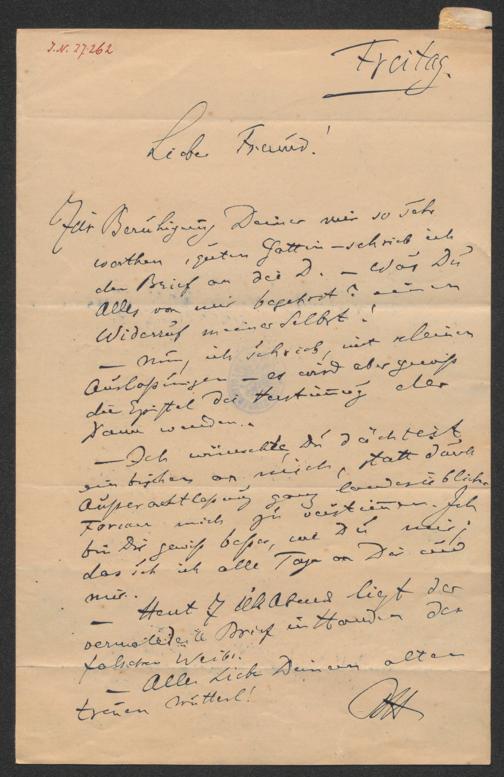 J.N. 27262
Freitag.
Lieber Freund!
Zur Beruhigung Deiner mir so sehr
werthen, guten Gattin – schrieb ich
den Brief an die D. – Was Du
Alles von mir begehrst? einen
Widerruf meiner Selbst!
– Nun, ich schrieb, mit kleinen
Auslaßungen – es wird aber gewiß
die Epistel die Verstimmung der
Dame wenden..
– Ich wünschte Du dächtest
ein bißchen an mich, statt durch
Außerachtlaßung ganz landesüblicher
Formen mich zu verstimmen. Ich
bin Dir gewiß beßer, wie Du mir;
das seh ich alle Tage an Dir und
mir.
– Heut 7 Uhr Abend liegt der
Brief in Handen des
falschen Weibs.
– Alles Liebe Deinem alten
treuen Mutterl!